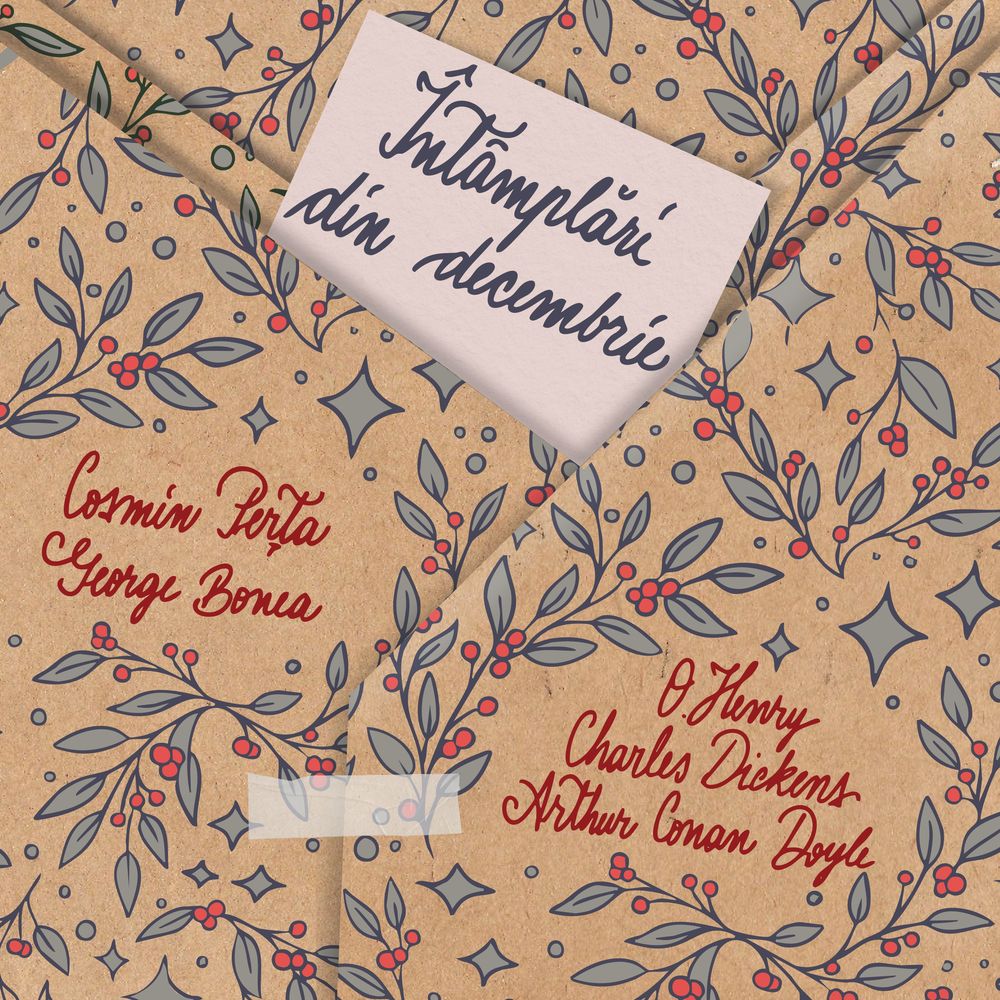 Întâmplări
din decembrie
Cosmin Perța
George Bonea
O. Henry
Charles Dickens
Arthur Conan Doyle